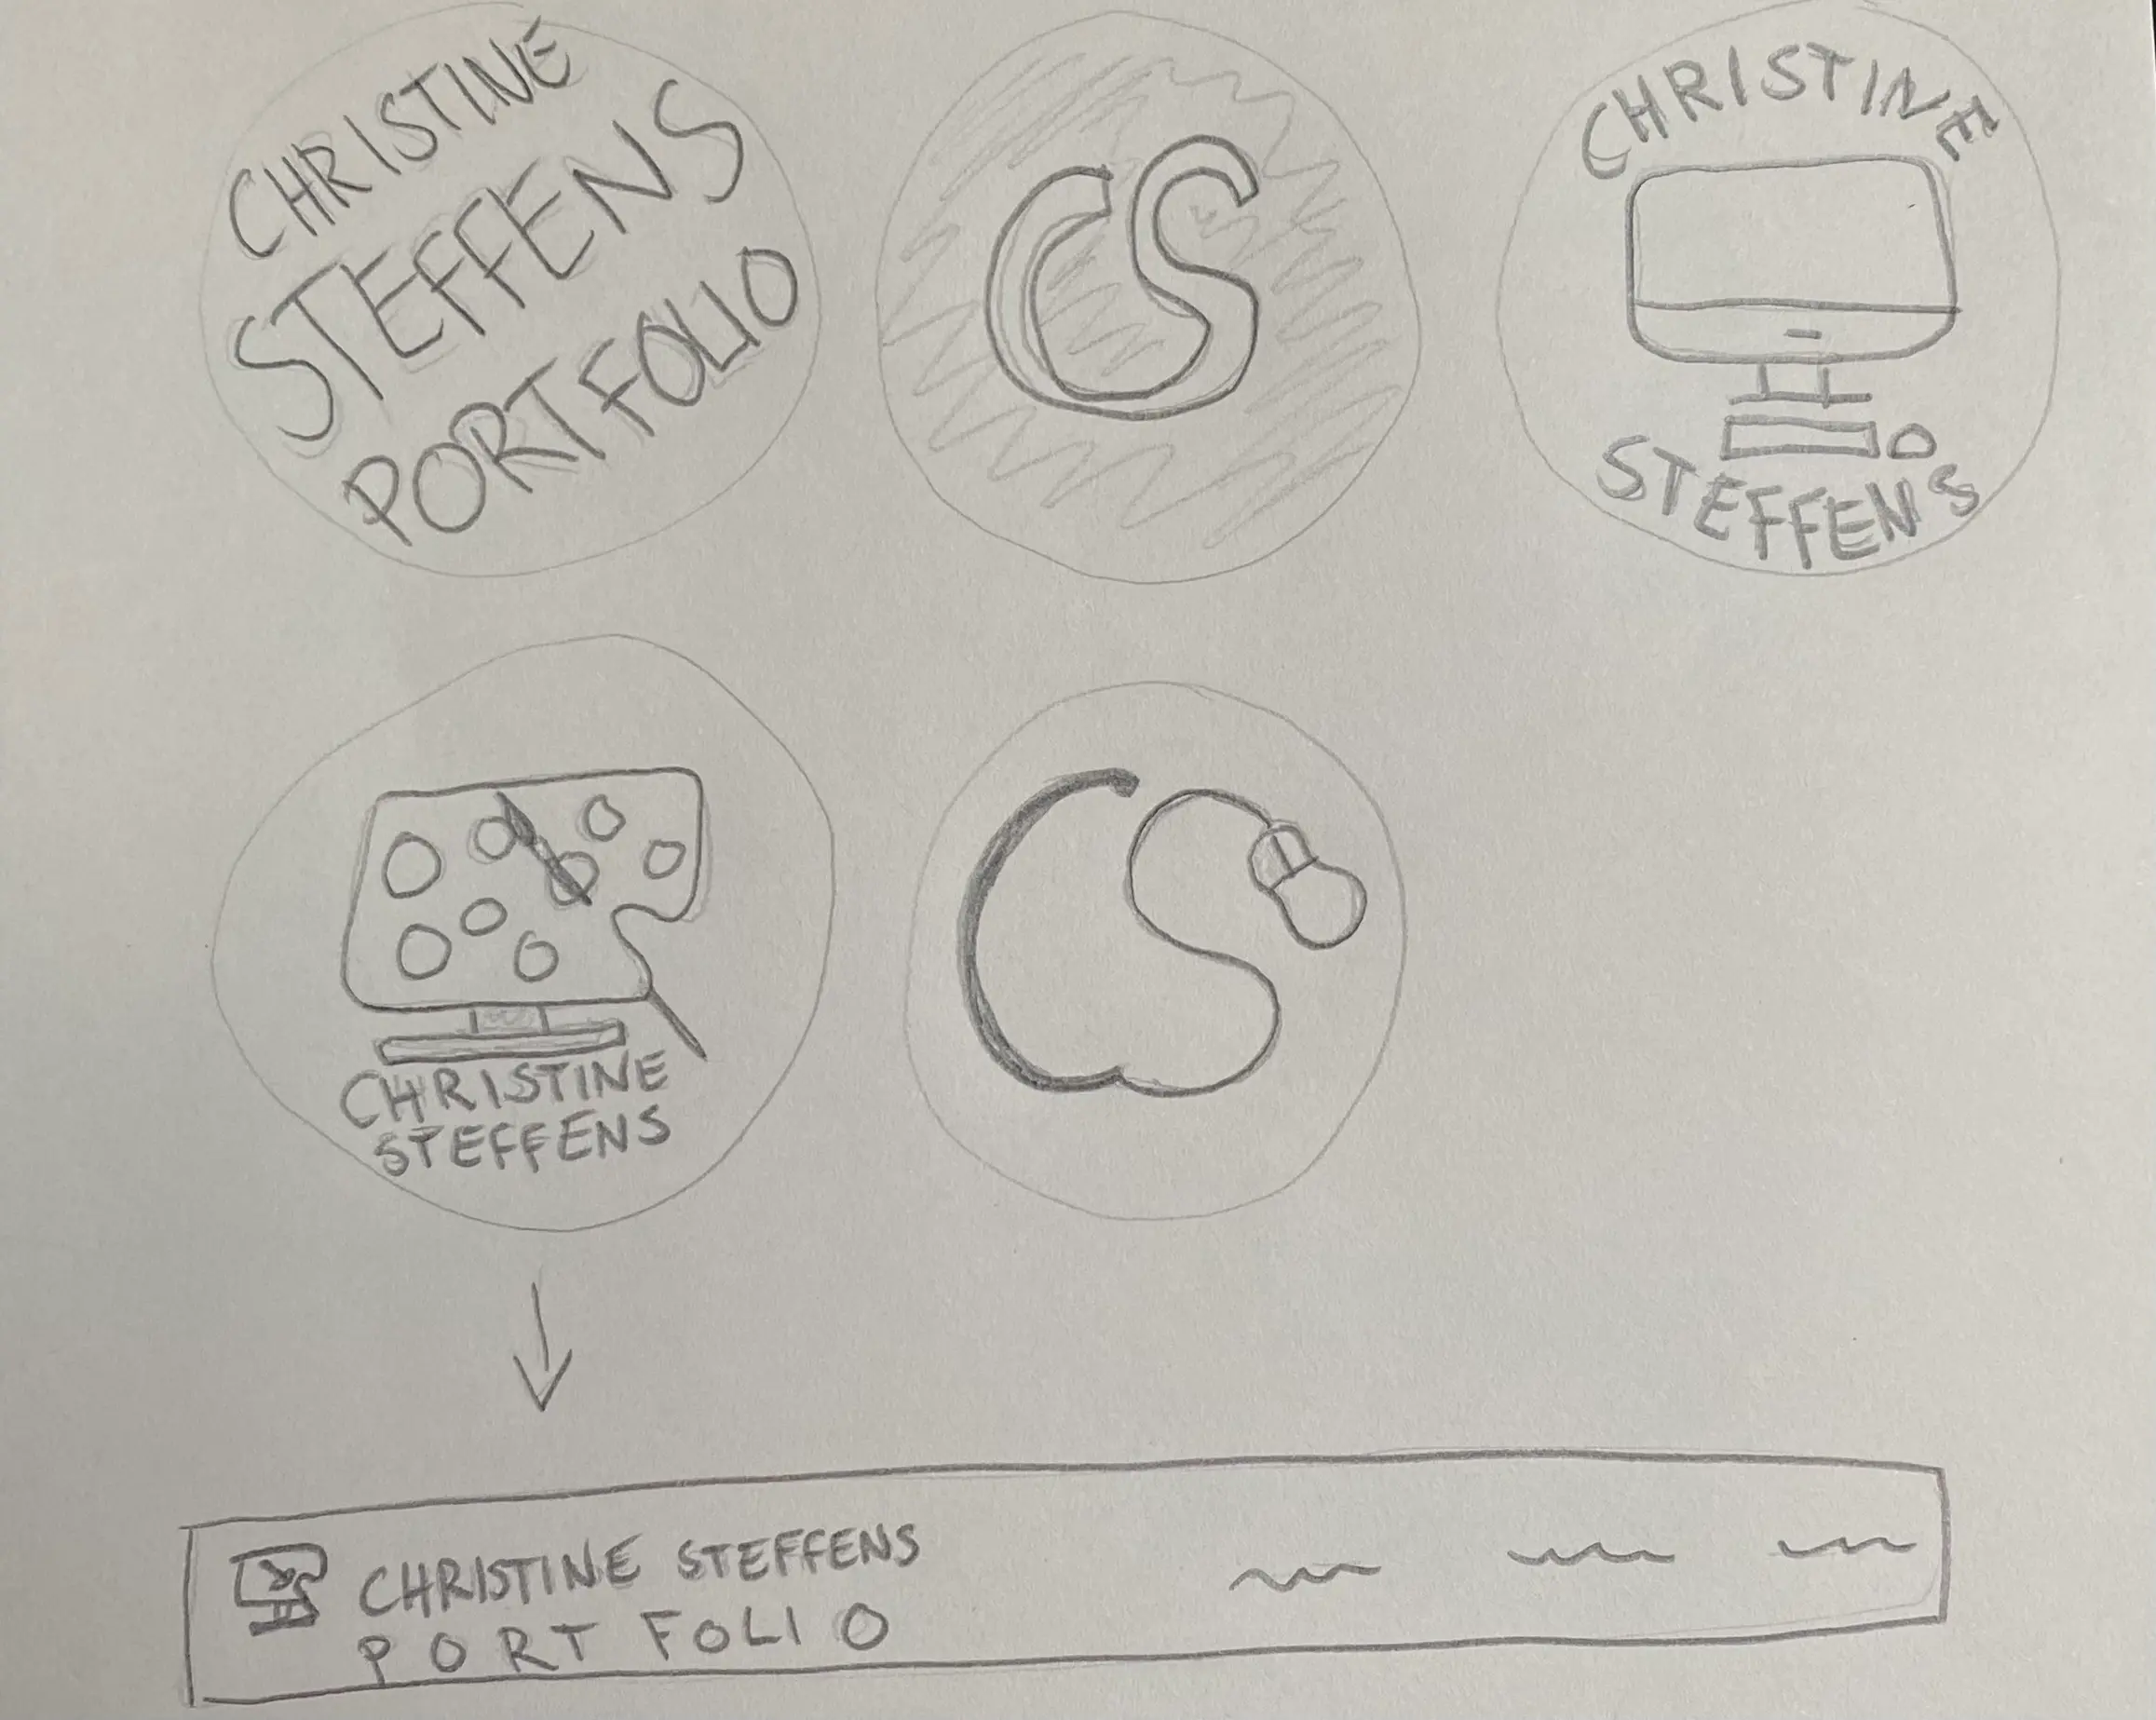 CHRISTINE
STEFFENS
PORTFOLIO
CS
CHRISTINE
STEFFENS
CHRISTINE
STEFFENS
CS
CHRISTINE STEFFENS
PORTFOLIO